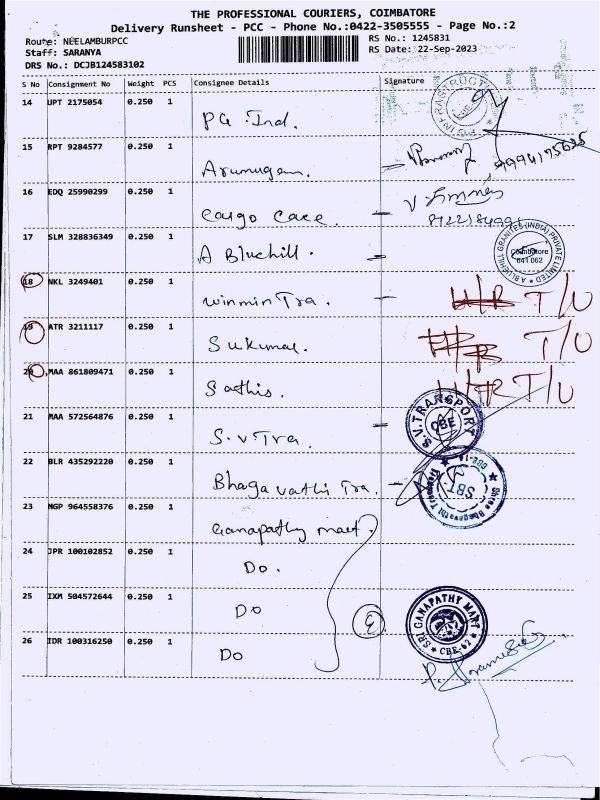 THE PROFESSIONAL COURIERS, COIMBATORE
Delivery Runsheet - PCC - Phone No.:0422-3505555 - Page No.:2
Route: NEELAMBURPCC
RS No.: 1245831
Staff: SARANYA
RS Date: 22-Sep-2023
DRS No.: DCJB124583102
S No Consignment No Weight PCS Consignee Details Signature
14 UPT 2175054 0.250 1 PG Ind.
15 RPT 9284577 0.250 1 Arumugam. 9994175625
16 EDQ 25990299 0.250 1 Cargo Care.
17 SLM 328836349 0.250 1 A Bluehill.
A BLUEHILL GRANITES (INDIA) PRIVATE LIMITED
Coimbatore
641 062
18 NKL 3249401 0.250 1 Winmin Tra. T/U
19 ATR 3211117 0.250 1 Sukumar. T/U
20 MAA 861809471 0.250 1 Sathis. T/U
21 MAA 572564876 0.250 1 S.V Tra.
S.V. TRANSPORT
CBE
22 BLR 435292220 0.250 1 Bhagavathi Tra.
SBT
23 NGP 964558376 0.250 1 Ganapathy mart.
24 JPR 100102852 0.250 1 Do.
25 IXM 504572644 0.250 1 Do
26 IDR 100316250 0.250 1 Do
SRI GANAPATHY MART
CBE-62